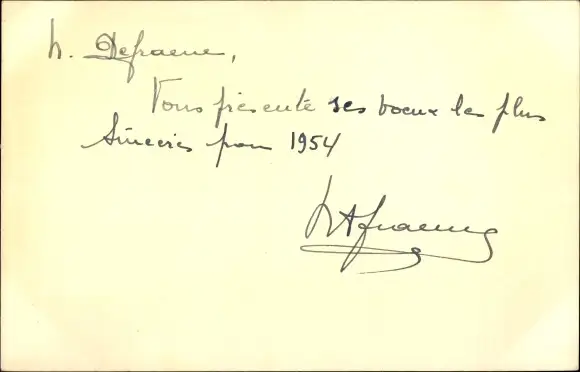 h. Defraene,
Vous présente ses voeux les plus
sincères pour 1954